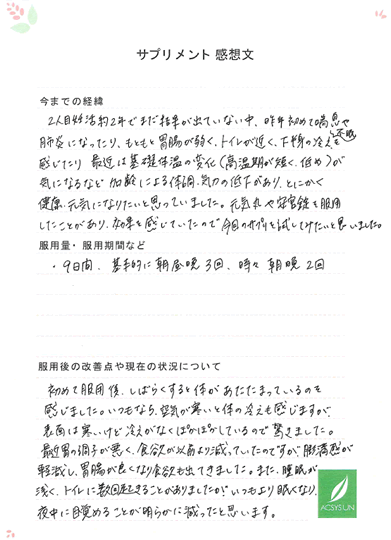 サプリメント 感想文
今までの経緯
2人目妊活約2年でまだ結果が出ていない中、昨年初めて喘息や
肺炎になったり、もともと胃腸が弱く、トイレが近く、下半身の冷えも
感じたり 最近は基礎体温の変化(高温期が短く、低め)が
気になるなど 加齢による体調、気力の低下があり、とにかく
健康、元気になりたいと思っていました。元気丸や安宮錠を服用
したことがあり、効果を感じていたので今回のサプリを試してみたいと思いました。
服用量・服用期間など
・9日間、基本的に朝昼晩3回、時々 朝晩2回
服用後の改善点や現在の状況について
初めて服用後、しばらくすると体があたたまっているのを
感じました。いつもなら、空気が寒いと体の冷えも感じますが、
表面は寒いけど冷えがなくぽかぽかしているので驚きました。
最近胃の調子が悪く、食欲が以前より減っていたのですが、膨満感が
軽減し、胃腸が良くなり食欲も出てきました。また、睡眠が
浅く、トイレに数回起きることがありましたが いつもより眠くなり、
夜中に目覚めることが明らかに減ったと思います。
ACSYSUN